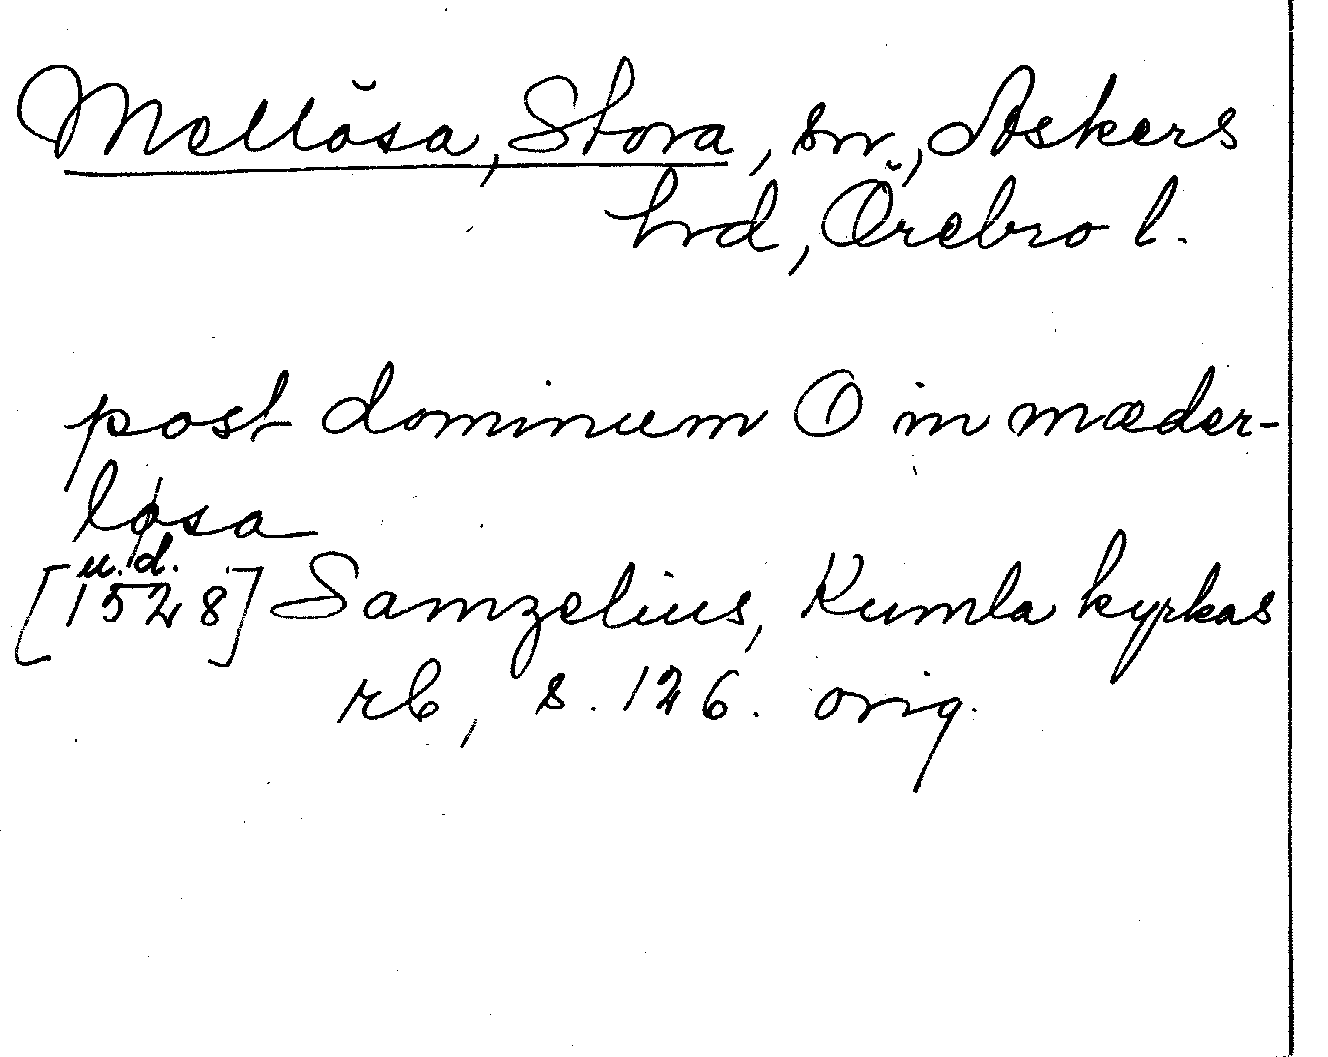 Mellösa, Stora, sn, Askers
hd, Örebro l.
post dominum O in mæder-
løsa
u.d.
[1528] Samzelius, Kumla kyrkas
rb, s. 126. orig.